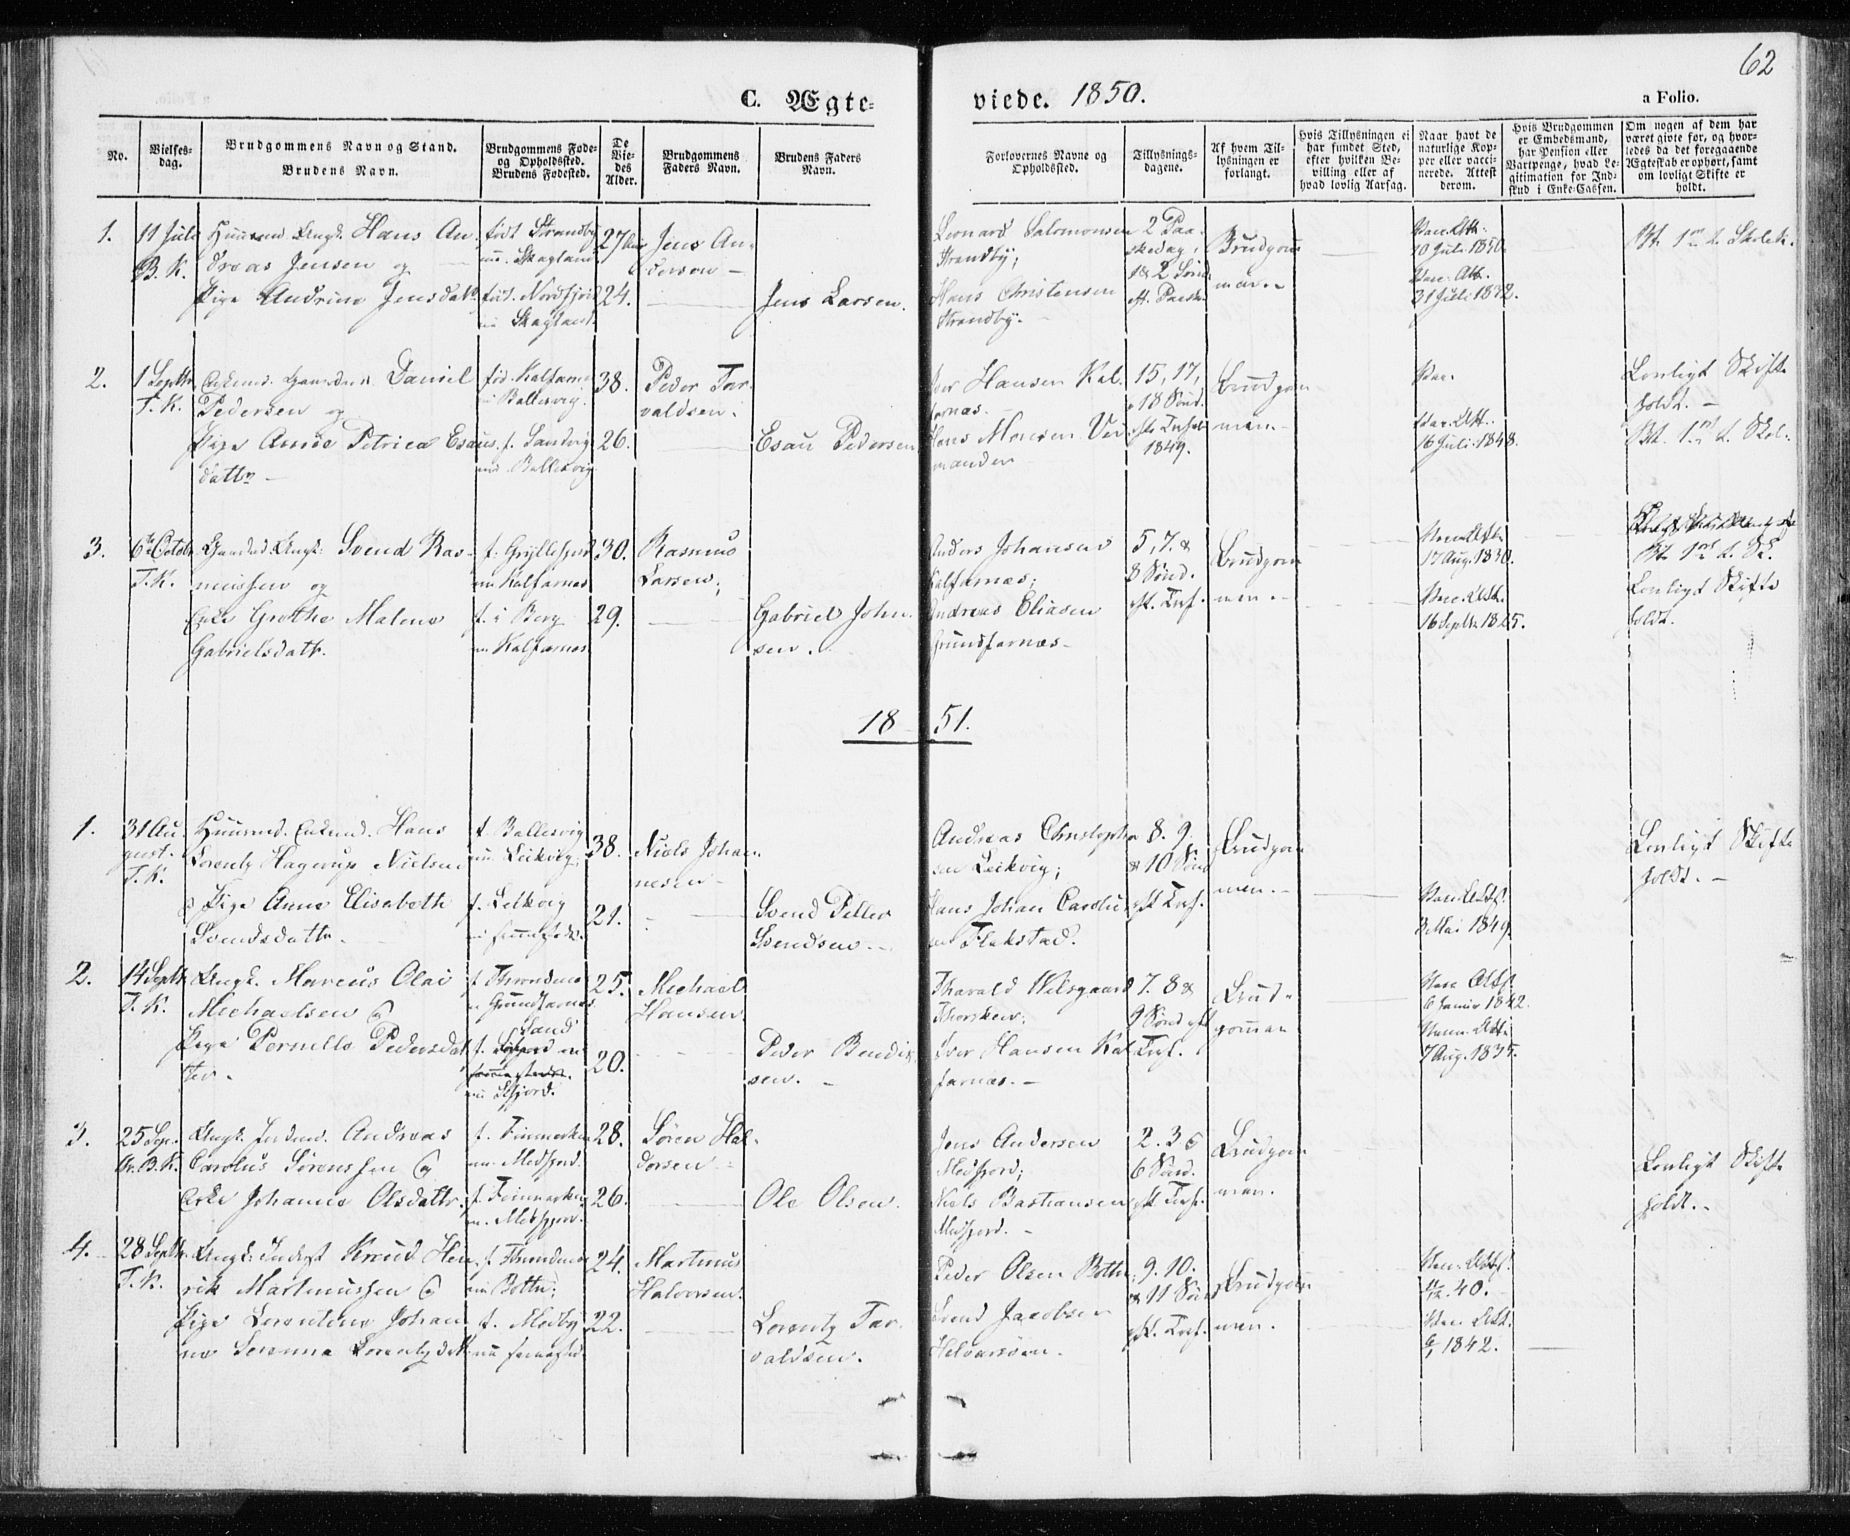 62
C. Ægteviede. 1850.
a Folio.
No.
Vielses-
dag.
Brudgommens Navn og Stand.
Brudens Navn.
Brudgommens Føde-
og Opholdssted.
Brudens Fødested.
De
Vie-
des
Alder.
Brudgommens
Faders Navn.
Brudens Faders
Navn.
Forlovernes Navne og
Opholdssted.
Tillysnings-
dagene.
Af hvem Til-
lysningen er
forlangt.
Hvis Tillysningen ei
har fundet Sted,
efter hvilken Be-
villing eller af
hvad lovlig Aarsag.
Naar havt de
naturlige Kop-
per eller vacci-
nerede. Attest
derom.
Hvis Brudgommen
er Embedsmand,
har Pension eller
Vartpenge, hvad Le-
gitimation for Ind-
skud i Enke-Cassen.
Om nogen af dem har
været givte før, og hvor-
ledes da det foregaaende
Ægteskab er ophørt, samt
om lovligt Skifte er
holdt.
1. 11 Juli
B. K.
Huusmd Ungk. Hans An-
dreas Jensen og
Pige Andrine Jensdatr.
født Strandby
nu Skagland
født Nordfjord
nu Skagland.
27 Aar
24.
Jens An-
dersen
Jens Larsen.
Leonard Salomonsen
Strandby;
Hans Christensen
Strandby.
2 Paa-
skedag,
1 & 2 Sønd.
eft. Paaske
Brudgom-
men.
Vac. Att.
10 Juli 1850.
Vac. Att.
31 Juli 1842.
2. 1 Septbr.
T. K.
Enkemd. Gaardmd. Daniel
Pedersen og
Pige Anne Petrica Esaus-
datter
fød. Kalfarnes
nu Ballesvig.
f. Sandvig
nu Ballesvig
38.
26.
Peder Tar-
valdsen.
Esau Pedersen
Iver Hansen Kal-
farnæs.
Hans Monsen
15, 17,
18 Sønd.
eft. Trefol.
1849.
Brudgom-
men.
Vac.
Vac. Att.
16 Juli 1848.
Lovligt Skifte
holdt.
3. 6te Octobr.
T. K.
Gaardmd. Ungk. Svend Ras-
mussen og
Enke Grethe Malene
Gabrielsdatr.
f. Gryllefjord
nu Kalfarnes
f. i Berg
nu Kalfarnes
30.
29.
Rasmus
Larsen;
Gabriel John-
sen.
Anders Johansen
Kalfarnæs;
Andreas Eliasen
Grundfarnæs.
5, 7. &
8 Sønd.
eft. Tref.
Brudgom-
men.
Vac. Att.
17 Aug. 1830.
Vac. Att.
16 Septb. 1825.
Lovligt Skifte
holdt.
1851.
1. 31 Au-
gust.
T. K.
Huusmd. Enkemd. Hans
Lorentz Hagerup Nielsen
& Pige Anne Elisabeth
Svendsdatr.
f. Ballesvig
nu Leikvig;
f. Leikvig
38.
21.
Niels Johan-
nesen
Svend Peller
Svendsen.
Andreas Christoph-
sen Leikvig;
Hans Johan Carolius-
sen Flakstad.
8. 9.
& 10 Sønd
eft Tref.
Brudgom-
men.
Vac. Att.
3 Mai 1849.
Lovligt Skifte
holdt.
2. 14 Septbr.
T. K.
Ungk. Marcus Olai
Michaelsen &
Pige Pernille Pedersdat-
ter.
f. Throndenæs
n. Grundfarnæs
25.
20.
Michael
Hansen
Peder Bendix-
sen.
Tharald Wilsgaard
Thorsken;
Iver Hansen Kal-
farnæs.
7. 8 &
9 Sønd eft
Tref.
Brud-
gommen
Vac. Att.
6 Janur 1842.
Vacc. Att.
7 Aug. 1835.
3. 25 Sep.
Ungk. Andreas
Carolus Sørenssen &
Enke Johanne Olsdatr.
f. Finmarken
nu Medfjord.
f. Finmarken
n. Medfjord.
28.
26.
Søren Hal-
dorsen
Ole Olsen.
Jens Andersen
Medfjord;
Niels Bastiansen
Medfjord.
2. 3 &
6 Sønd.
eft Tref.
Brudgom-
men.
Lovligt Skifte
holdt.
4. 28 Septbr.
T. K.
Ungk. Inderst Knud Hen-
rik Martinussen &
Pige Lorentine Johan-
ne Serenna Lorentzdatr.
f. Throndenæs
nu Botn;
f. Medby
24.
22.
Martinus
Halvorsen.
Lorentz Tar-
valdsen.
Peder Olsen Botn;
Svend Jacobsen
9. 10.
& 11 Sønd
eft. Tref.
Brudgom-
men.
Vac. Att.
40.
Vac. Att.
1842.